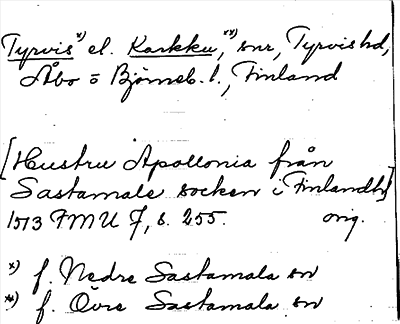 Tyrvis*) el. Karkku,**) snr, Tyrvis hd,
Åbo o Björneb. l., Finland
[Hustru Apollonia från
Sastamale socken i Finlandh]
1513 FMU 7, s. 255. orig.
*) f. Nedre Sastamala sn
**) f. Övre Sastamala sn